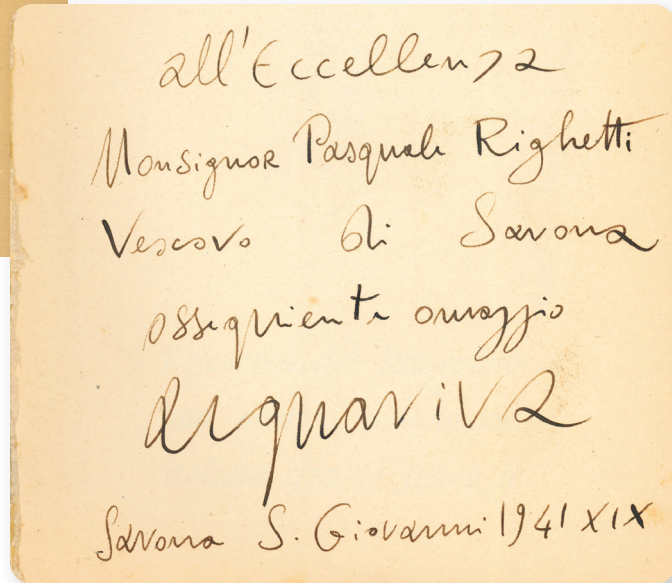 all'Eccellenza
Monsignor Pasquale Righetti
Vescovo di Savona
ossequiente omaggio
Acquaviva
Savona S. Giovanni 1941 XIX